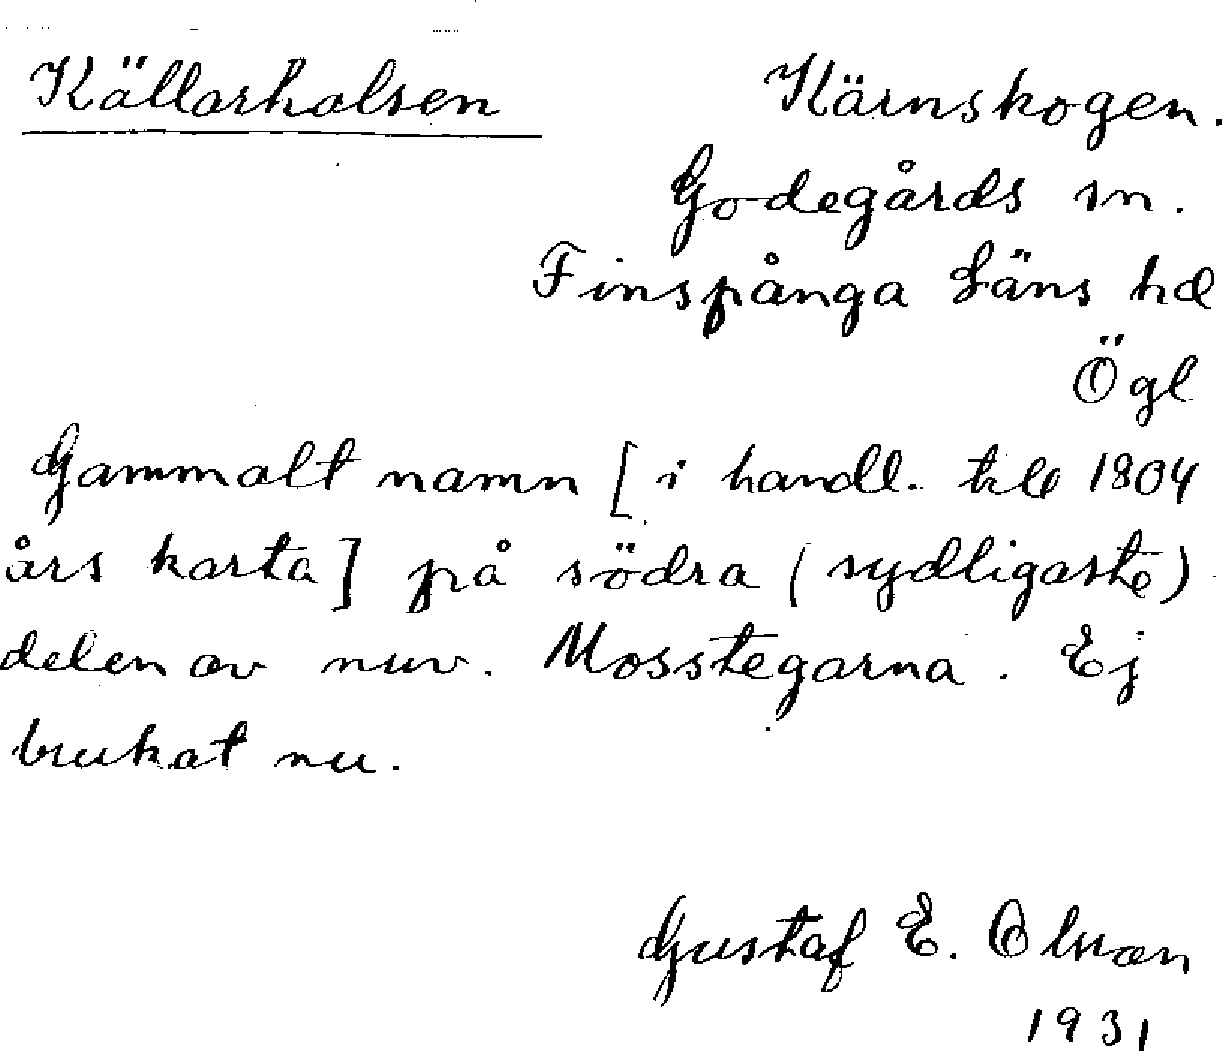 Källarhalsen Kärnskogen.
Godegårds sn.
Finspånga Läns hd
Ögl
Gammalt namn [i handl. till 1804
års karta] på södra (sydligaste)
delen av nuv. Mosstegarna. Ej
brukat nu.
Gustaf E. Olson
1931